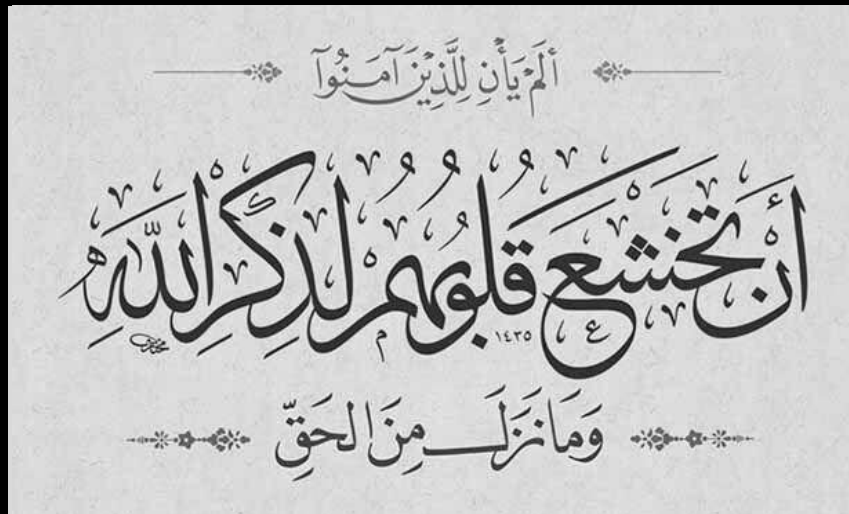 أَلَمْ يَأْنِ لِلَّذِينَ آمَنُوٓا
أَنْ تَخْشَعَ قُلُوبُهُمْ لِذِكْرِ اللَّهِ
١٤٣٥
وَمَا نَزَلَ مِنَ الْحَقِّ